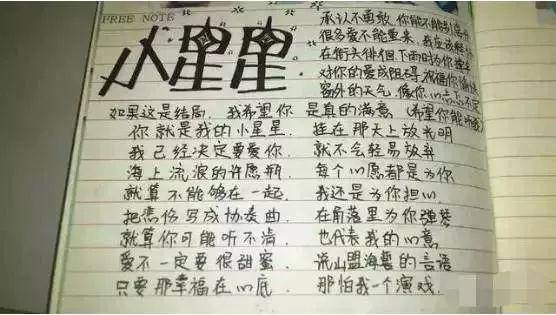 FREE NOTE
小星星
承认不勇敢 你能不能别离开
很多爱不能重来 我应该释怀
在街头徘徊 下雨时为你撑
对你的爱成阻碍 祝福你愉快
窗外的天气 像你心忐忑不定
如果这是结局 我希望你 是真的满意 (希望你能听
你就是我的小星星 挂在那天上放光明
我已经决定要爱你 就不会轻易放弃
海上流浪的许愿瓶 每个心愿都是为你
就算不能够在一起 我还是为你担心
把悲伤写成协奏曲 在角落里为你弹琴
就算你可能听不清 也代表我的心意
爱不一定要很甜蜜 说山盟海誓的言语
只要那幸福在心底 那怕我一个演戏.